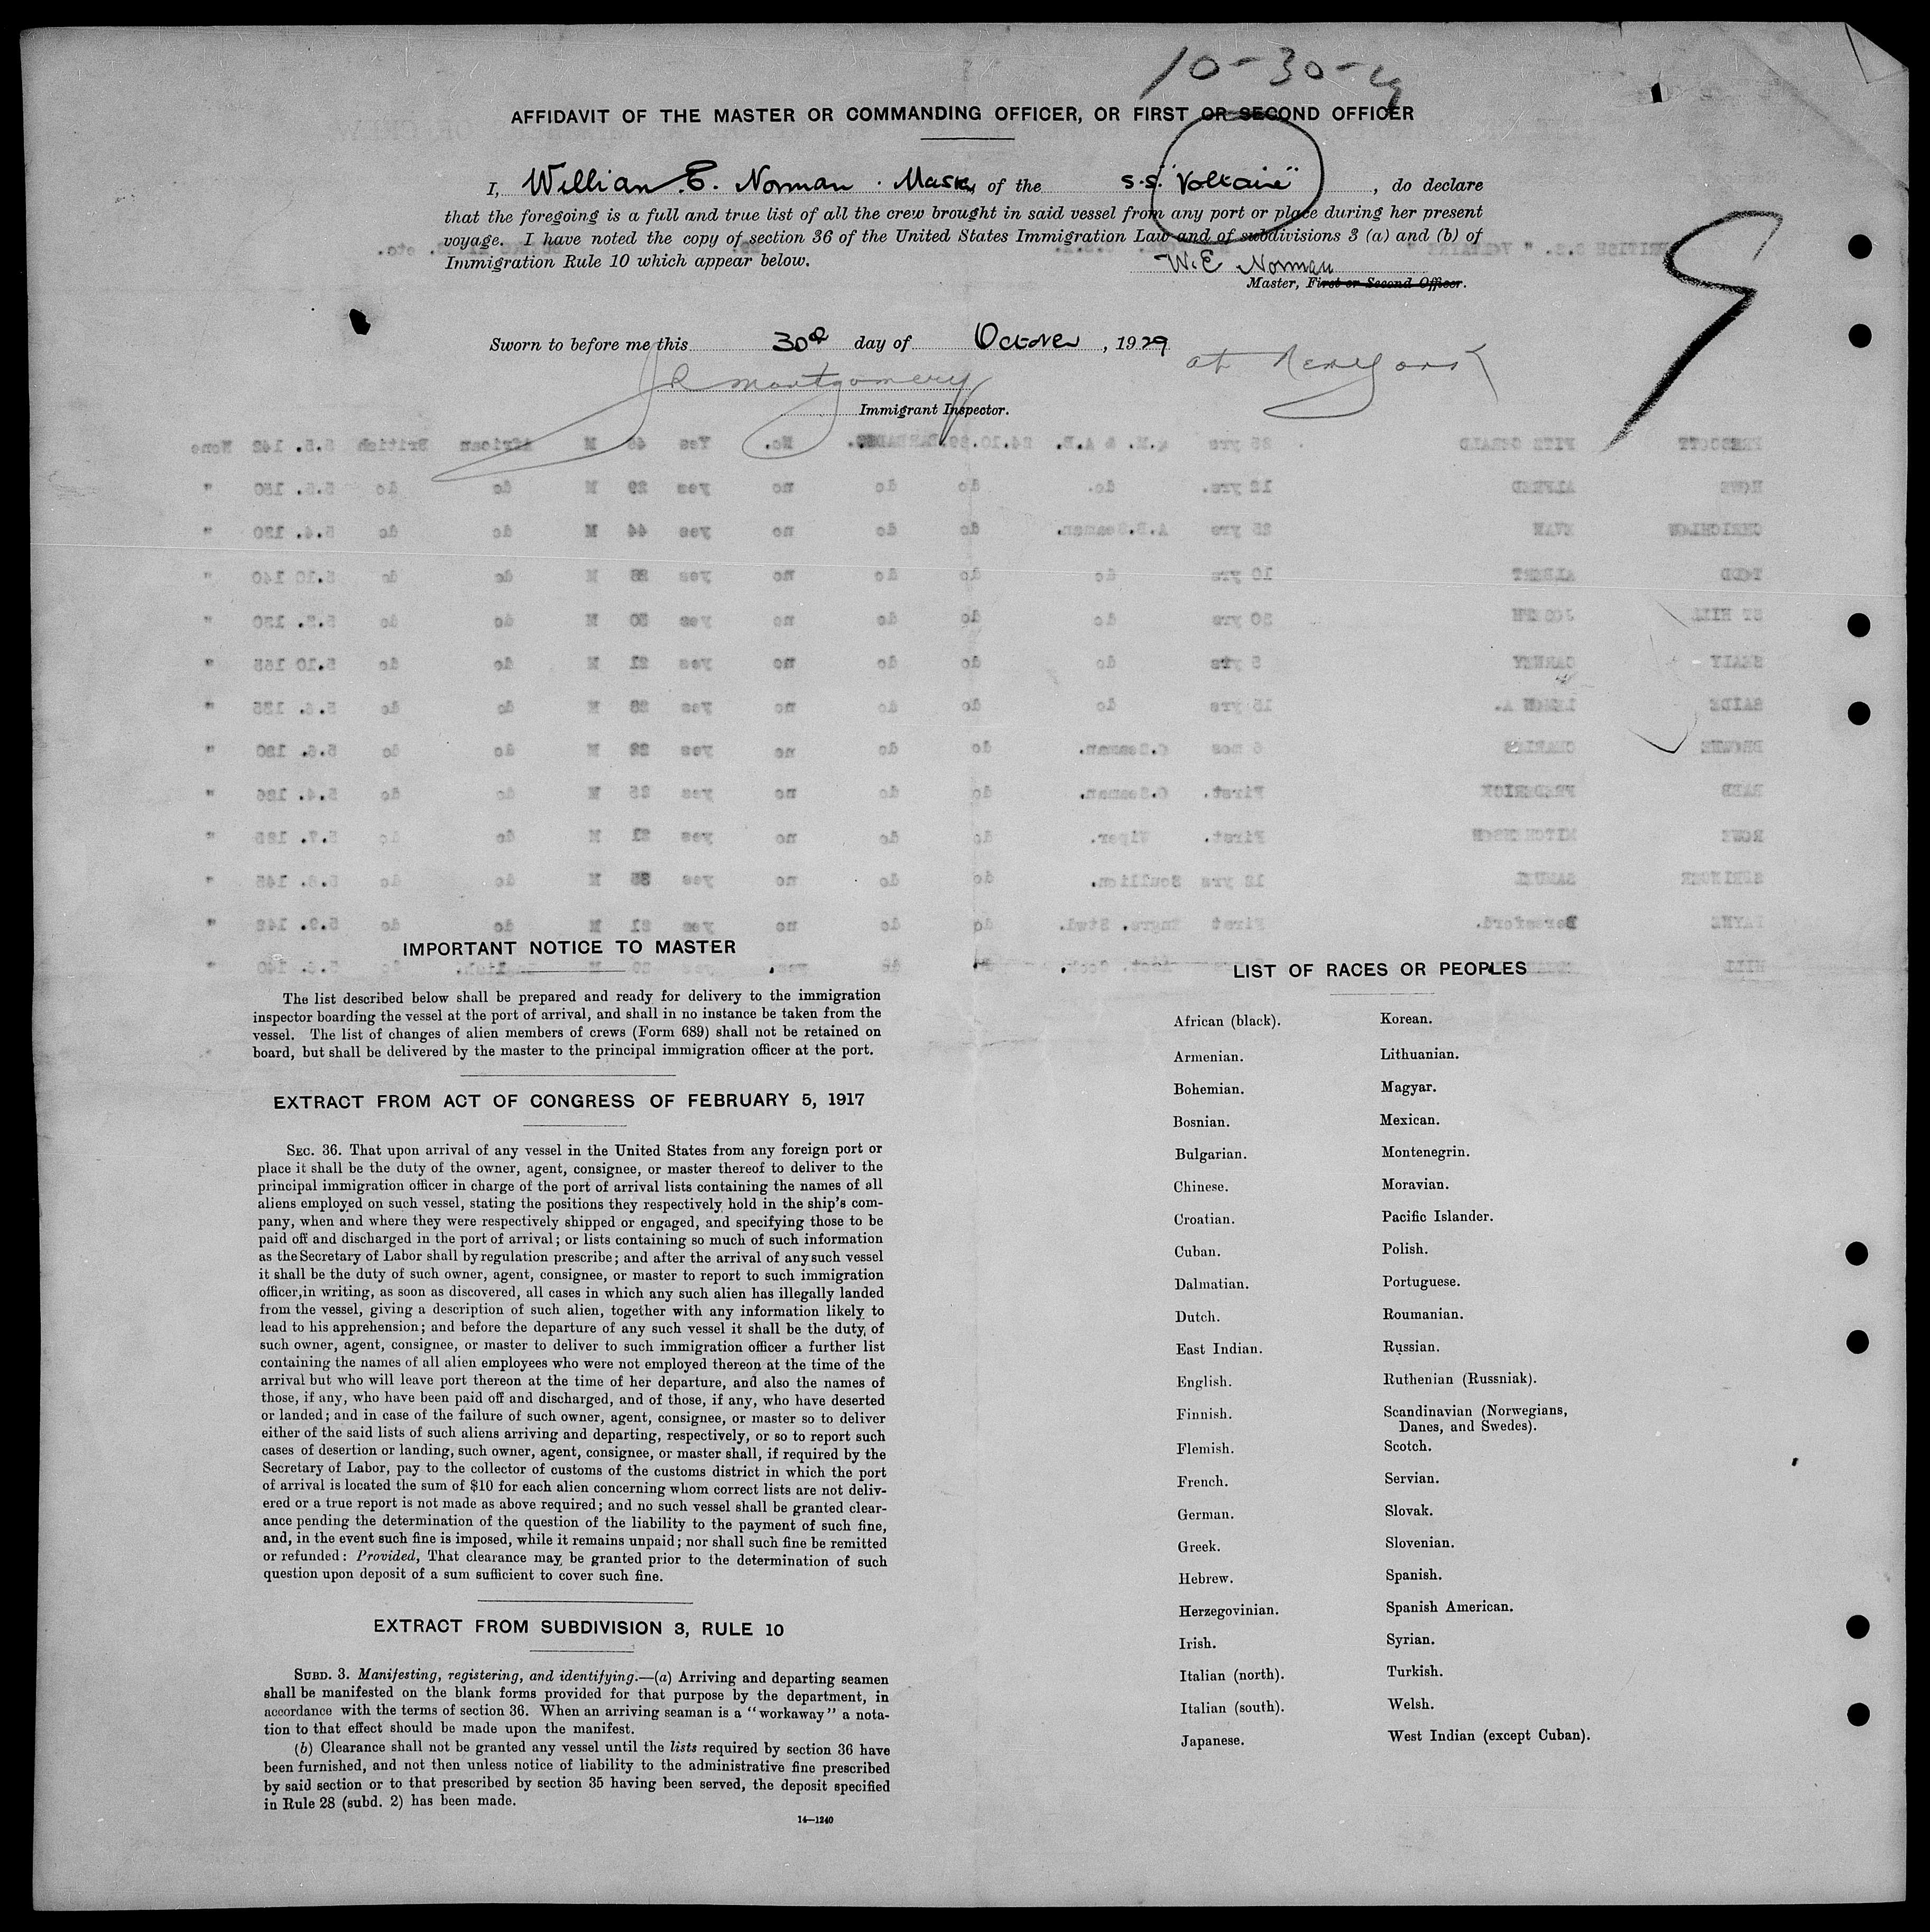 10-30-29
AFFIDAVIT OF THE MASTER OR COMMANDING OFFICER, OR FIRST OR SECOND OFFICER
I, William E. Norman . Master of the S.S. "Voltaire", do declare
that the foregoing is a full and true list of all the crew brought in said vessel from any port or place during her present
voyage. I have noted the copy of section 36 of the United States Immigration Law and of subdivisions 3 (a) and (b) of
Immigration Rule 10 which appear below.
W. E Norman
Master, First or Second Officer.
Sworn to before me this 30th day of October, 1929
at New York
J R Montgomery
Immigrant Inspector.
9
IMPORTANT NOTICE TO MASTER
The list described below shall be prepared and ready for delivery to the immigration
inspector boarding the vessel at the port of arrival, and shall in no instance be taken from the
vessel. The list of changes of alien members of crews (Form 689) shall not be retained on
board, but shall be delivered by the master to the principal immigration officer at the port.
EXTRACT FROM ACT OF CONGRESS OF FEBRUARY 5, 1917
SEC. 36. That upon arrival of any vessel in the United States from any foreign port or
place it shall be the duty of the owner, agent, consignee, or master thereof to deliver to the
principal immigration officer in charge of the port of arrival lists containing the names of all
aliens employed on such vessel, stating the positions they respectively hold in the ship's com-
pany, when and where they were respectively shipped or engaged, and specifying those to be
paid off and discharged in the port of arrival; or lists containing so much of such information
as the Secretary of Labor shall by regulation prescribe; and after the arrival of any such vessel
it shall be the duty of such owner, agent, consignee, or master to report to such immigration
officer, in writing, as soon as discovered, all cases in which any such alien has illegally landed
from the vessel, giving a description of such alien, together with any information likely to
lead to his apprehension; and before the departure of any such vessel it shall be the duty of
such owner, agent, consignee, or master to deliver to such immigration officer a further list
containing the names of all alien employees who were not employed thereon at the time of the
arrival but who will leave port thereon at the time of her departure, and also the names of
those, if any, who have been paid off and discharged, and of those, if any, who have deserted
or landed; and in case of the failure of such owner, agent, consignee, or master so to deliver
either of the said lists of such aliens arriving and departing, respectively, or so to report such
cases of desertion or landing, such owner, agent, consignee, or master shall, if required by the
Secretary of Labor, pay to the collector of customs of the customs district in which the port
of arrival is located the sum of $10 for each alien concerning whom correct lists are not deliv-
ered or a true report is not made as above required; and no such vessel shall be granted clear-
ance pending the determination of the question of the liability to the payment of such fine,
and, in the event such fine is imposed, while it remains unpaid; nor shall such fine be remitted
or refunded: Provided, That clearance may be granted prior to the determination of such
question upon deposit of a sum sufficient to cover such fine.
EXTRACT FROM SUBDIVISION 3, RULE 10
SUBD. 3. Manifesting, registering, and identifying.—(a) Arriving and departing seamen
shall be manifested on the blank forms provided for that purpose by the department, in
accordance with the terms of section 36. When an arriving seaman is a "workaway" a nota-
tion to that effect should be made upon the manifest.
(b) Clearance shall not be granted any vessel until the lists required by section 36 have
been furnished, and not then unless notice of liability to the administrative fine prescribed
by said section or to that prescribed by section 35 having been served, the deposit specified
in Rule 28 (subd. 2) has been made.
14—1240
LIST OF RACES OR PEOPLES
African (black).
Armenian.
Bohemian.
Bosnian.
Bulgarian.
Chinese.
Croatian.
Cuban.
Dalmatian.
Dutch.
East Indian.
English.
Finnish.
Flemish.
French.
German.
Greek.
Hebrew.
Herzegovinian.
Irish.
Italian (north).
Italian (south).
Japanese.
Korean.
Lithuanian.
Magyar.
Mexican.
Montenegrin.
Moravian.
Pacific Islander.
Polish.
Portuguese.
Roumanian.
Russian.
Ruthenian (Russniak).
Scandinavian (Norwegians,
Danes, and Swedes).
Scotch.
Servian.
Slovak.
Slovenian.
Spanish.
Spanish American.
Syrian.
Turkish.
Welsh.
West Indian (except Cuban).